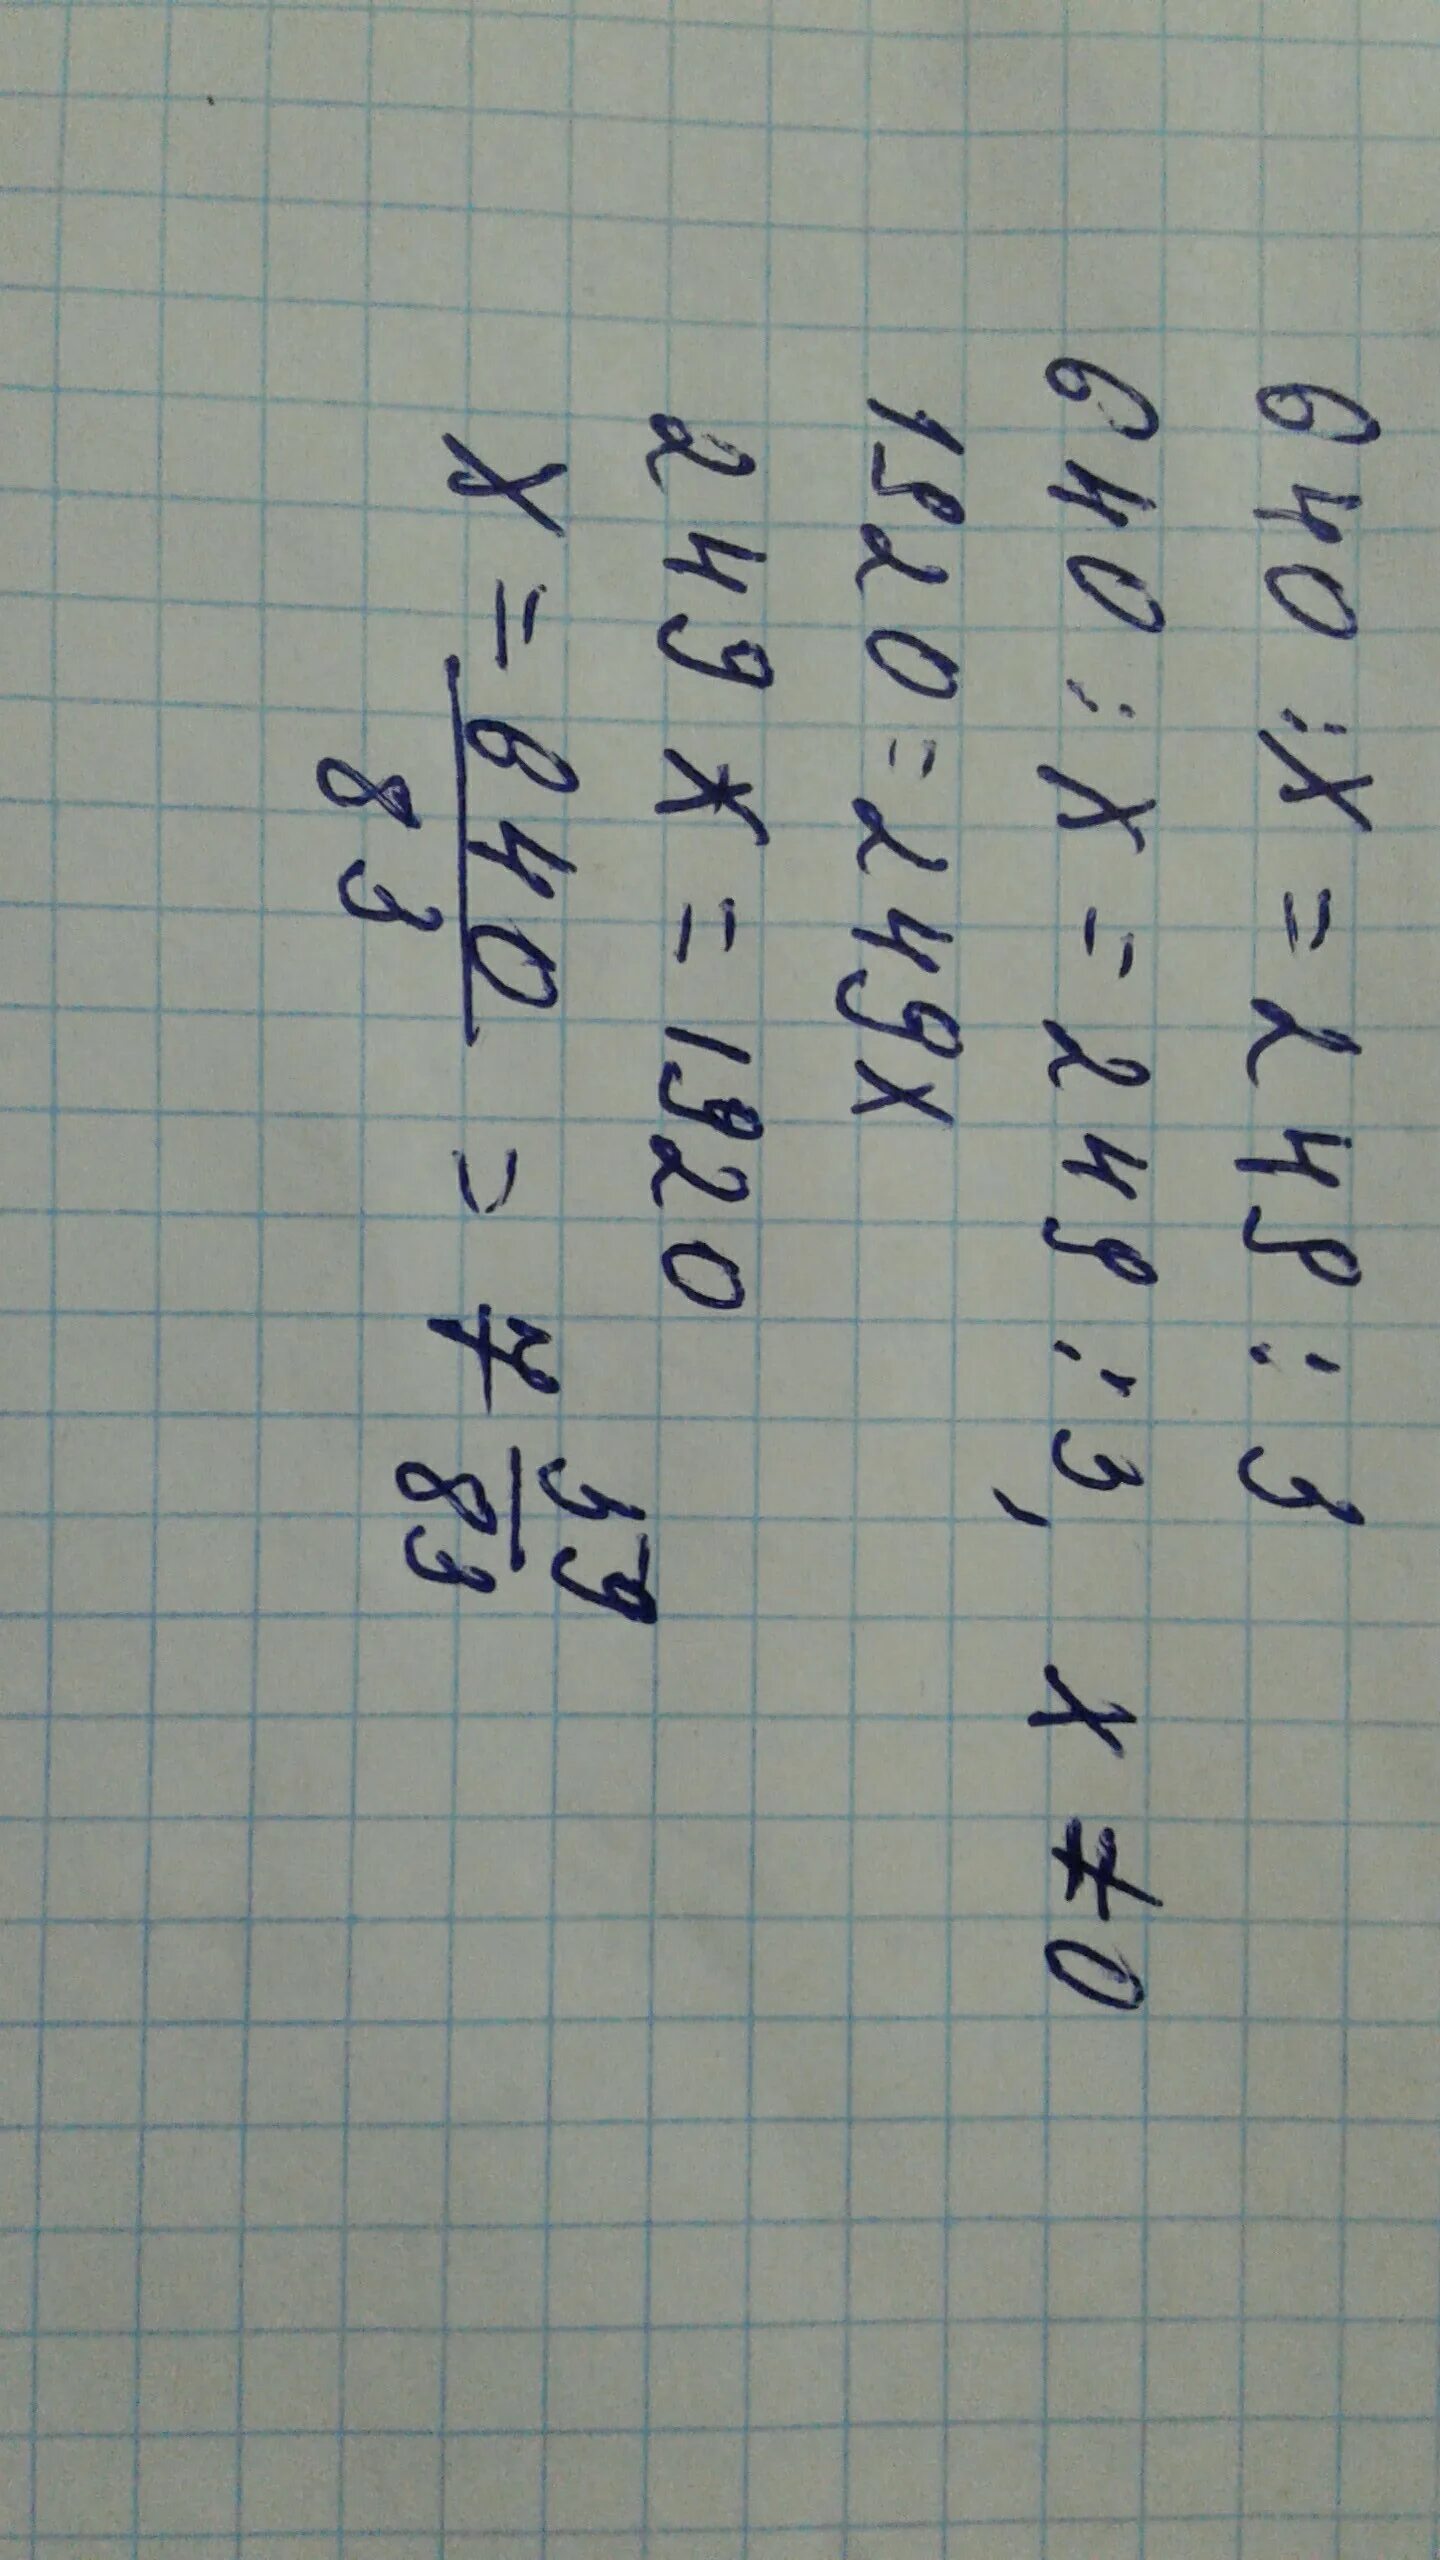 640 : x = 249 : 3
640 : x = 249 : 3, x ≠ 0
1920 = 249x
249x = 1920
x = 640/83 = 7 59/83